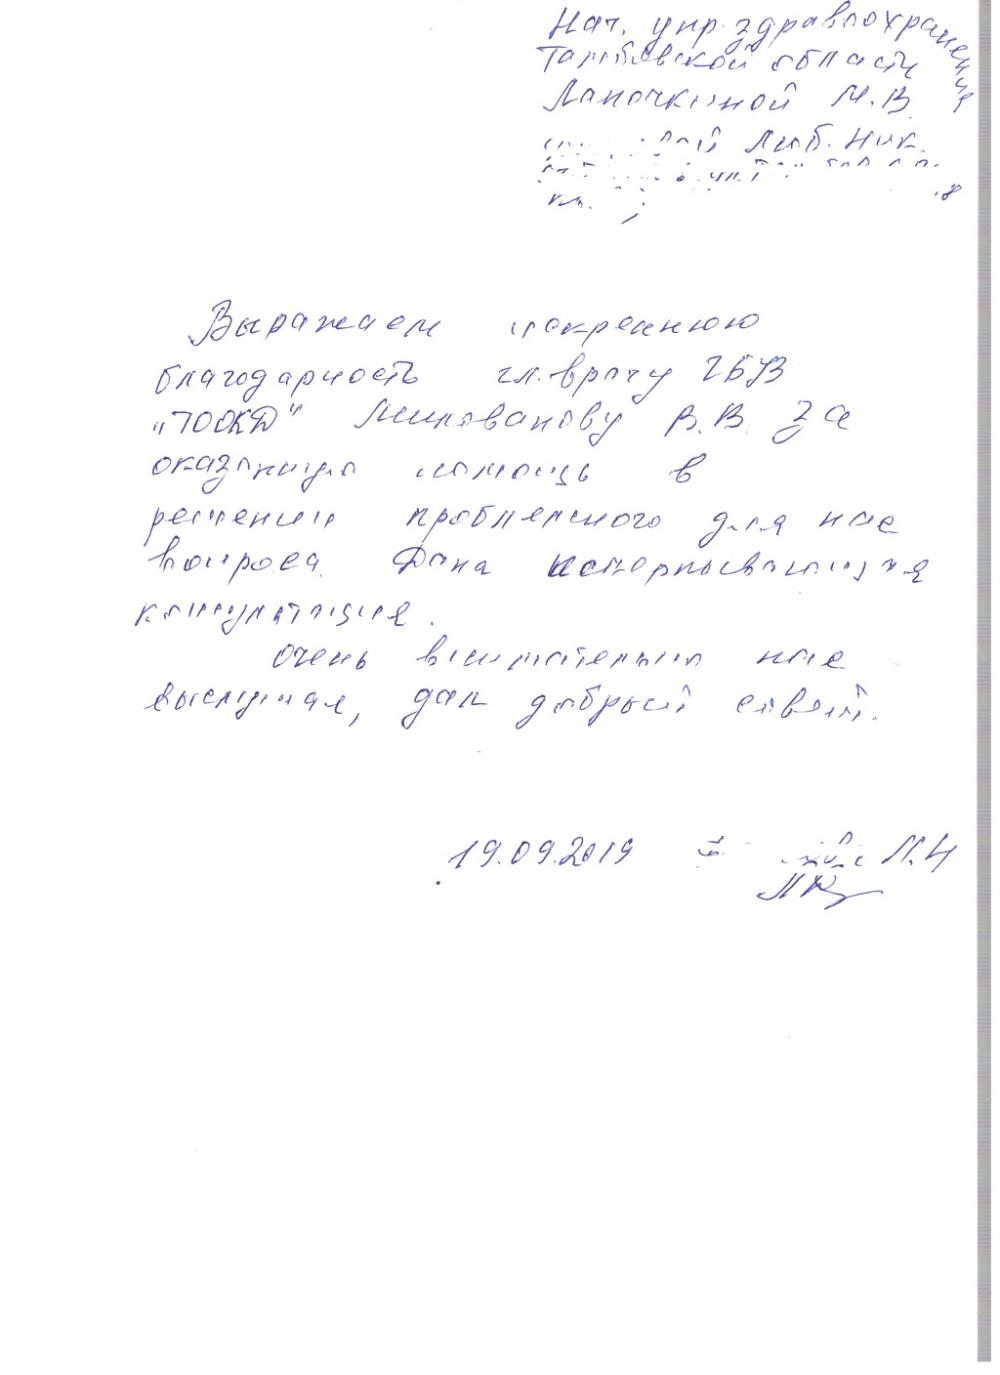 Нач. упр. здравоохранения
Тамбовской области
Лапочкиной М.В.
Люб. Ник.
Выражаем искреннюю
благодарность гл. врачу ГБУЗ
„ТООКД" Милованову В.В. за
оказанную помощь в
решении проблемного для нас
вопроса. Дана исчерпывающая
консультация.
Очень внимательно нас
выслушал, дал добрый совет.
19.09.2019 Л.Н